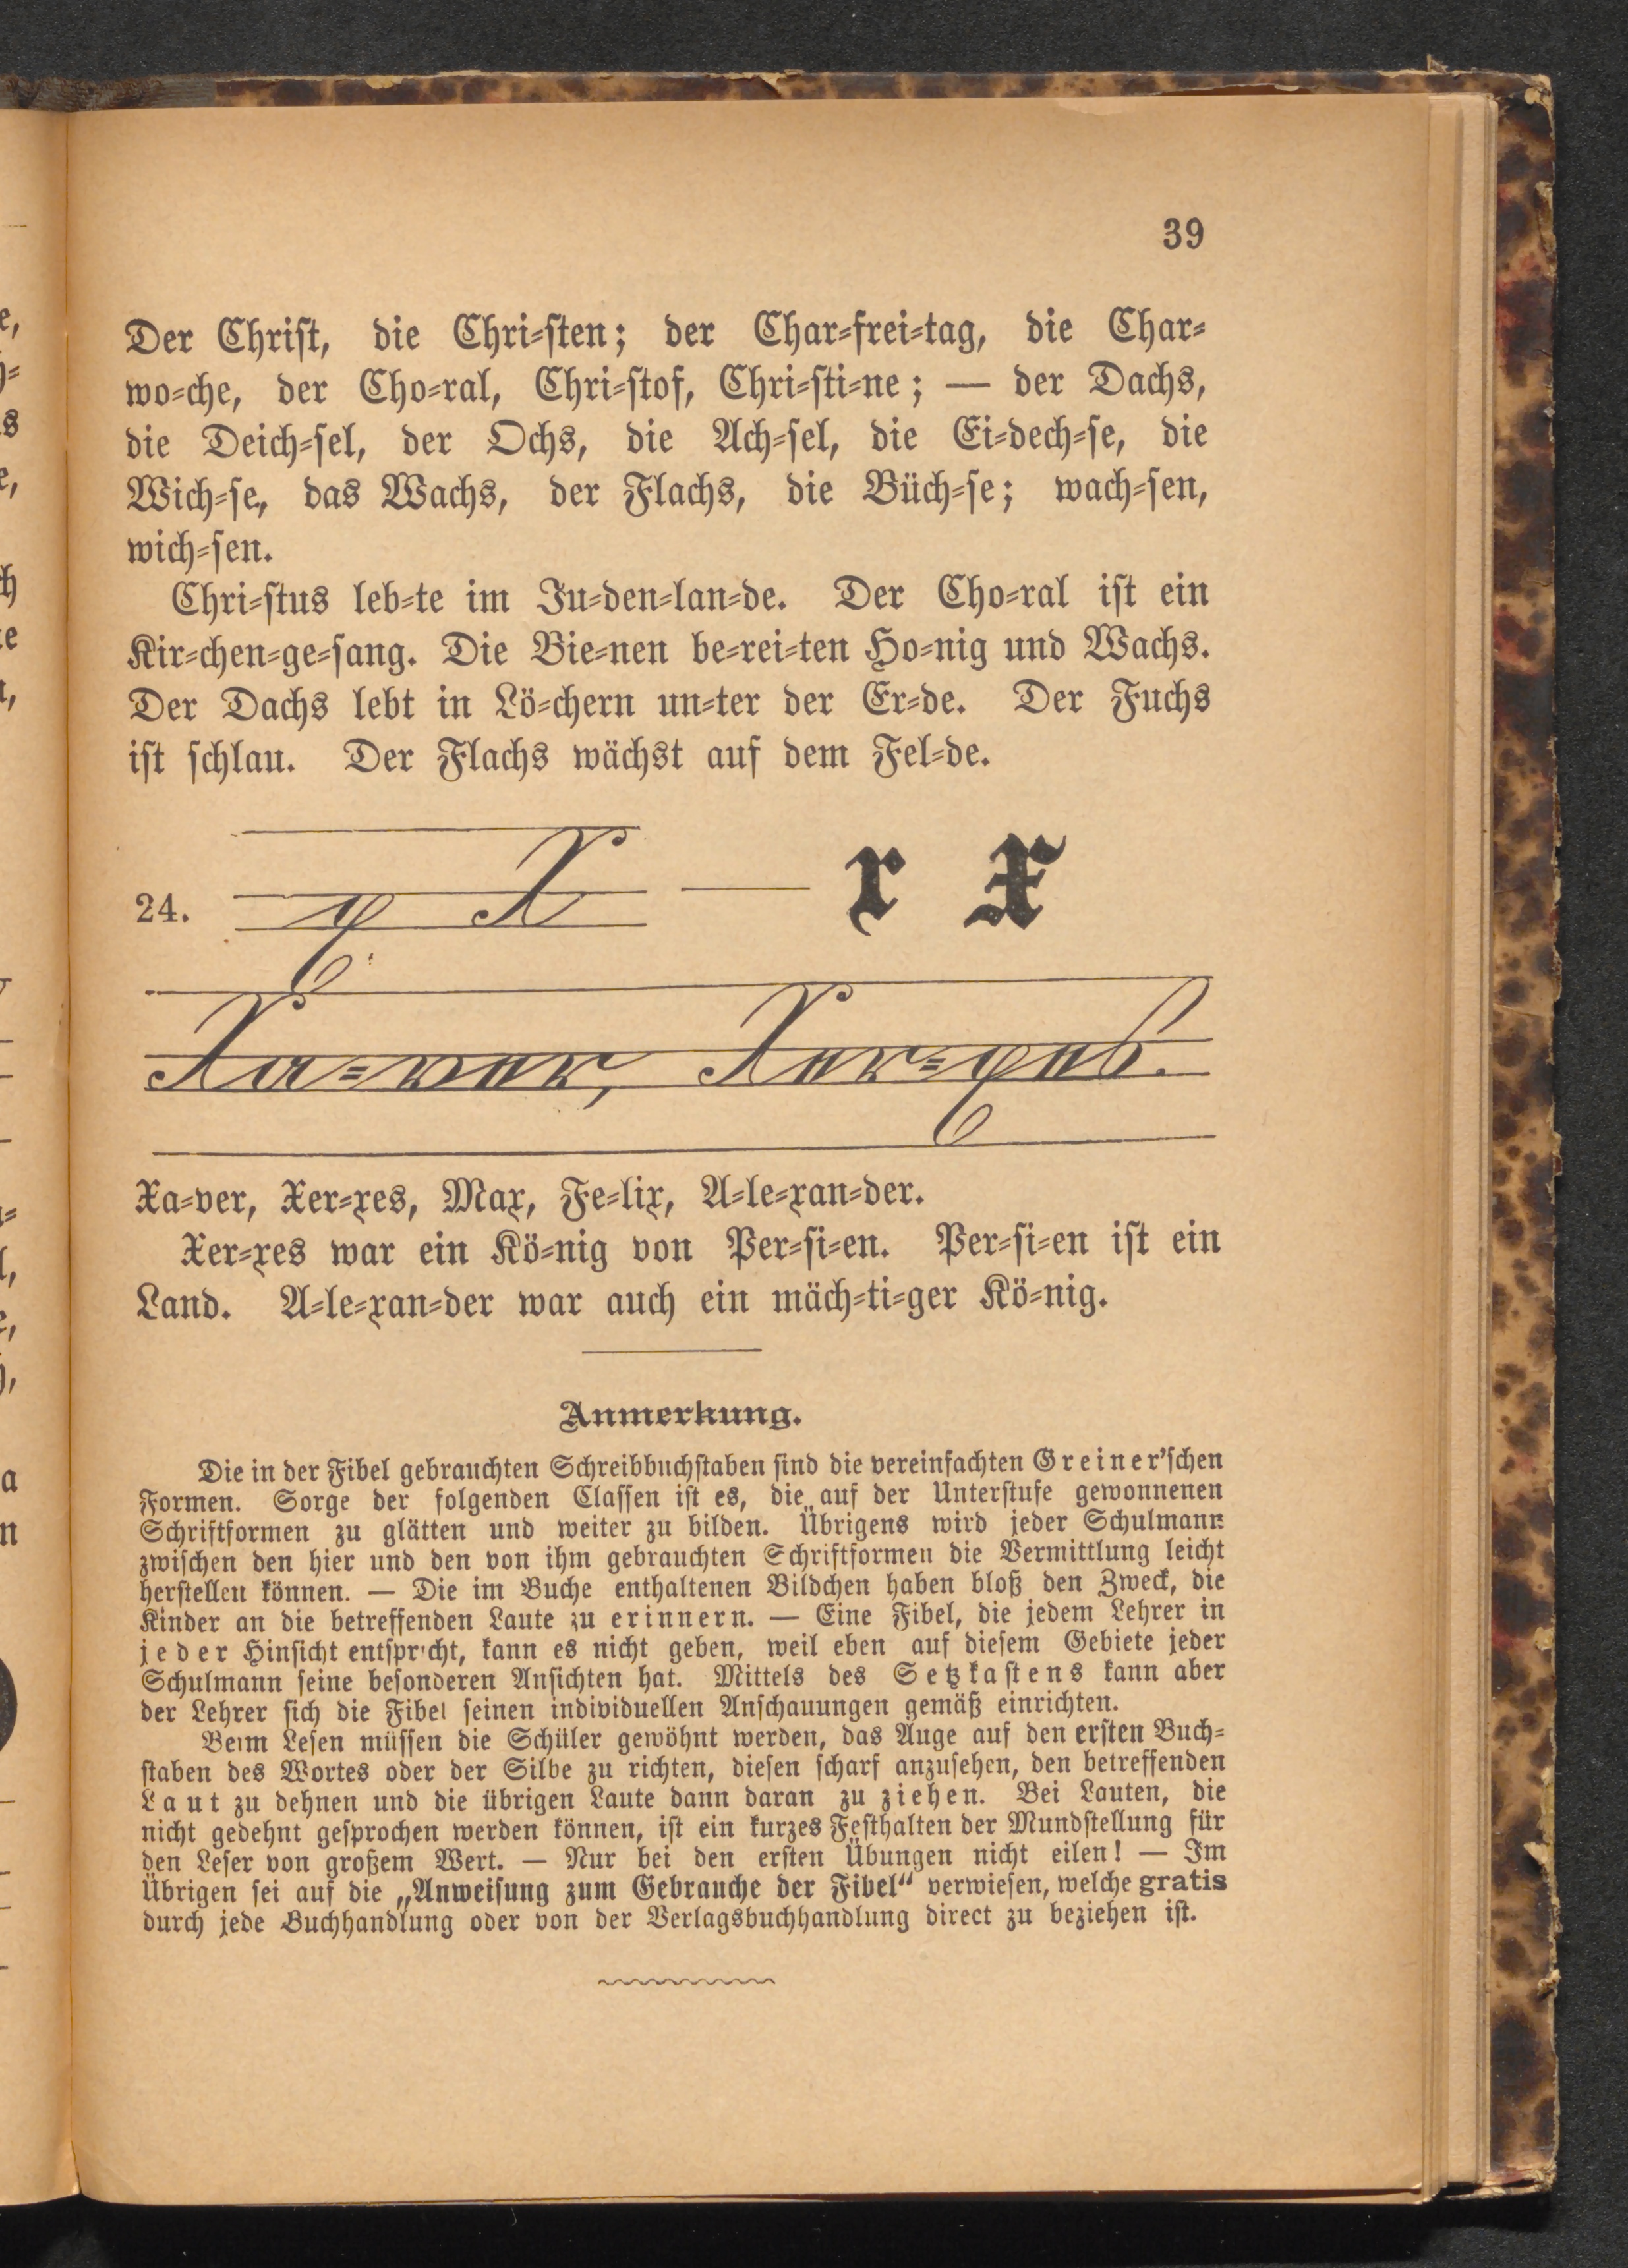 39
Der Christ, die Chri-sten; der Char-frei-tag, die Char-
wo-che, der Cho-ral, Chri-stof, Chri-sti-ne; — der Dachs,
die Deich-sel, der Ochs, die Ach-sel, die Ei-dech-se, die
Wich-se, das Wachs, der Flachs, die Büch-se; wach-sen,
wich-sen.
Chri-stus leb-te im Ju-den-lan-de. Der Cho-ral ist ein
Kir-chen-ge-sang. Die Bie-nen be-rei-ten Ho-nig und Wachs.
Der Dachs lebt in Lö-chern un-ter der Er-de. Der Fuchs
ist schlau. Der Flachs wächst auf dem Fel-de.
24. x X — x X
Xa-ver, Xer-xes.
Xa-ver, Xer-xes, Max, Fe-lix, A-le-xan-der.
Xer-xes war ein Kö-nig von Per-si-en. Per-si-en ist ein
Land. A-le-xan-der war auch ein mäch-ti-ger Kö-nig.
Anmerkung.
Die in der Fibel gebrauchten Schreibbuchstaben sind die vereinfachten Greiner'schen
Formen. Sorge der folgenden Classen ist es, die auf der Unterstufe gewonnenen
Schriftformen zu glätten und weiter zu bilden. Übrigens wird jeder Schulmann
zwischen den hier und den von ihm gebrauchten Schriftformen die Vermittlung leicht
herstellen können. — Die im Buche enthaltenen Bildchen haben bloß den Zweck, die
Kinder an die betreffenden Laute zu erinnern. — Eine Fibel, die jedem Lehrer in
jeder Hinsicht entspricht, kann es nicht geben, weil eben auf diesem Gebiete jeder
Schulmann seine besonderen Ansichten hat. Mittels des Setzkastens kann aber
der Lehrer sich die Fibel seinen individuellen Anschauungen gemäß einrichten.
Beim Lesen müssen die Schüler gewöhnt werden, das Auge auf den ersten Buch-
staben des Wortes oder der Silbe zu richten, diesen scharf anzusehen, den betreffenden
Laut zu dehnen und die übrigen Laute dann daran zu ziehen. Bei Lauten, die
nicht gedehnt gesprochen werden können, ist ein kurzes Festhalten der Mundstellung für
den Leser von großem Wert. — Nur bei den ersten Übungen nicht eilen! — Im
Übrigen sei auf die „Anweisung zum Gebrauche der Fibel“ verwiesen, welche gratis
durch jede Buchhandlung oder von der Verlagsbuchhandlung direct zu beziehen ist.